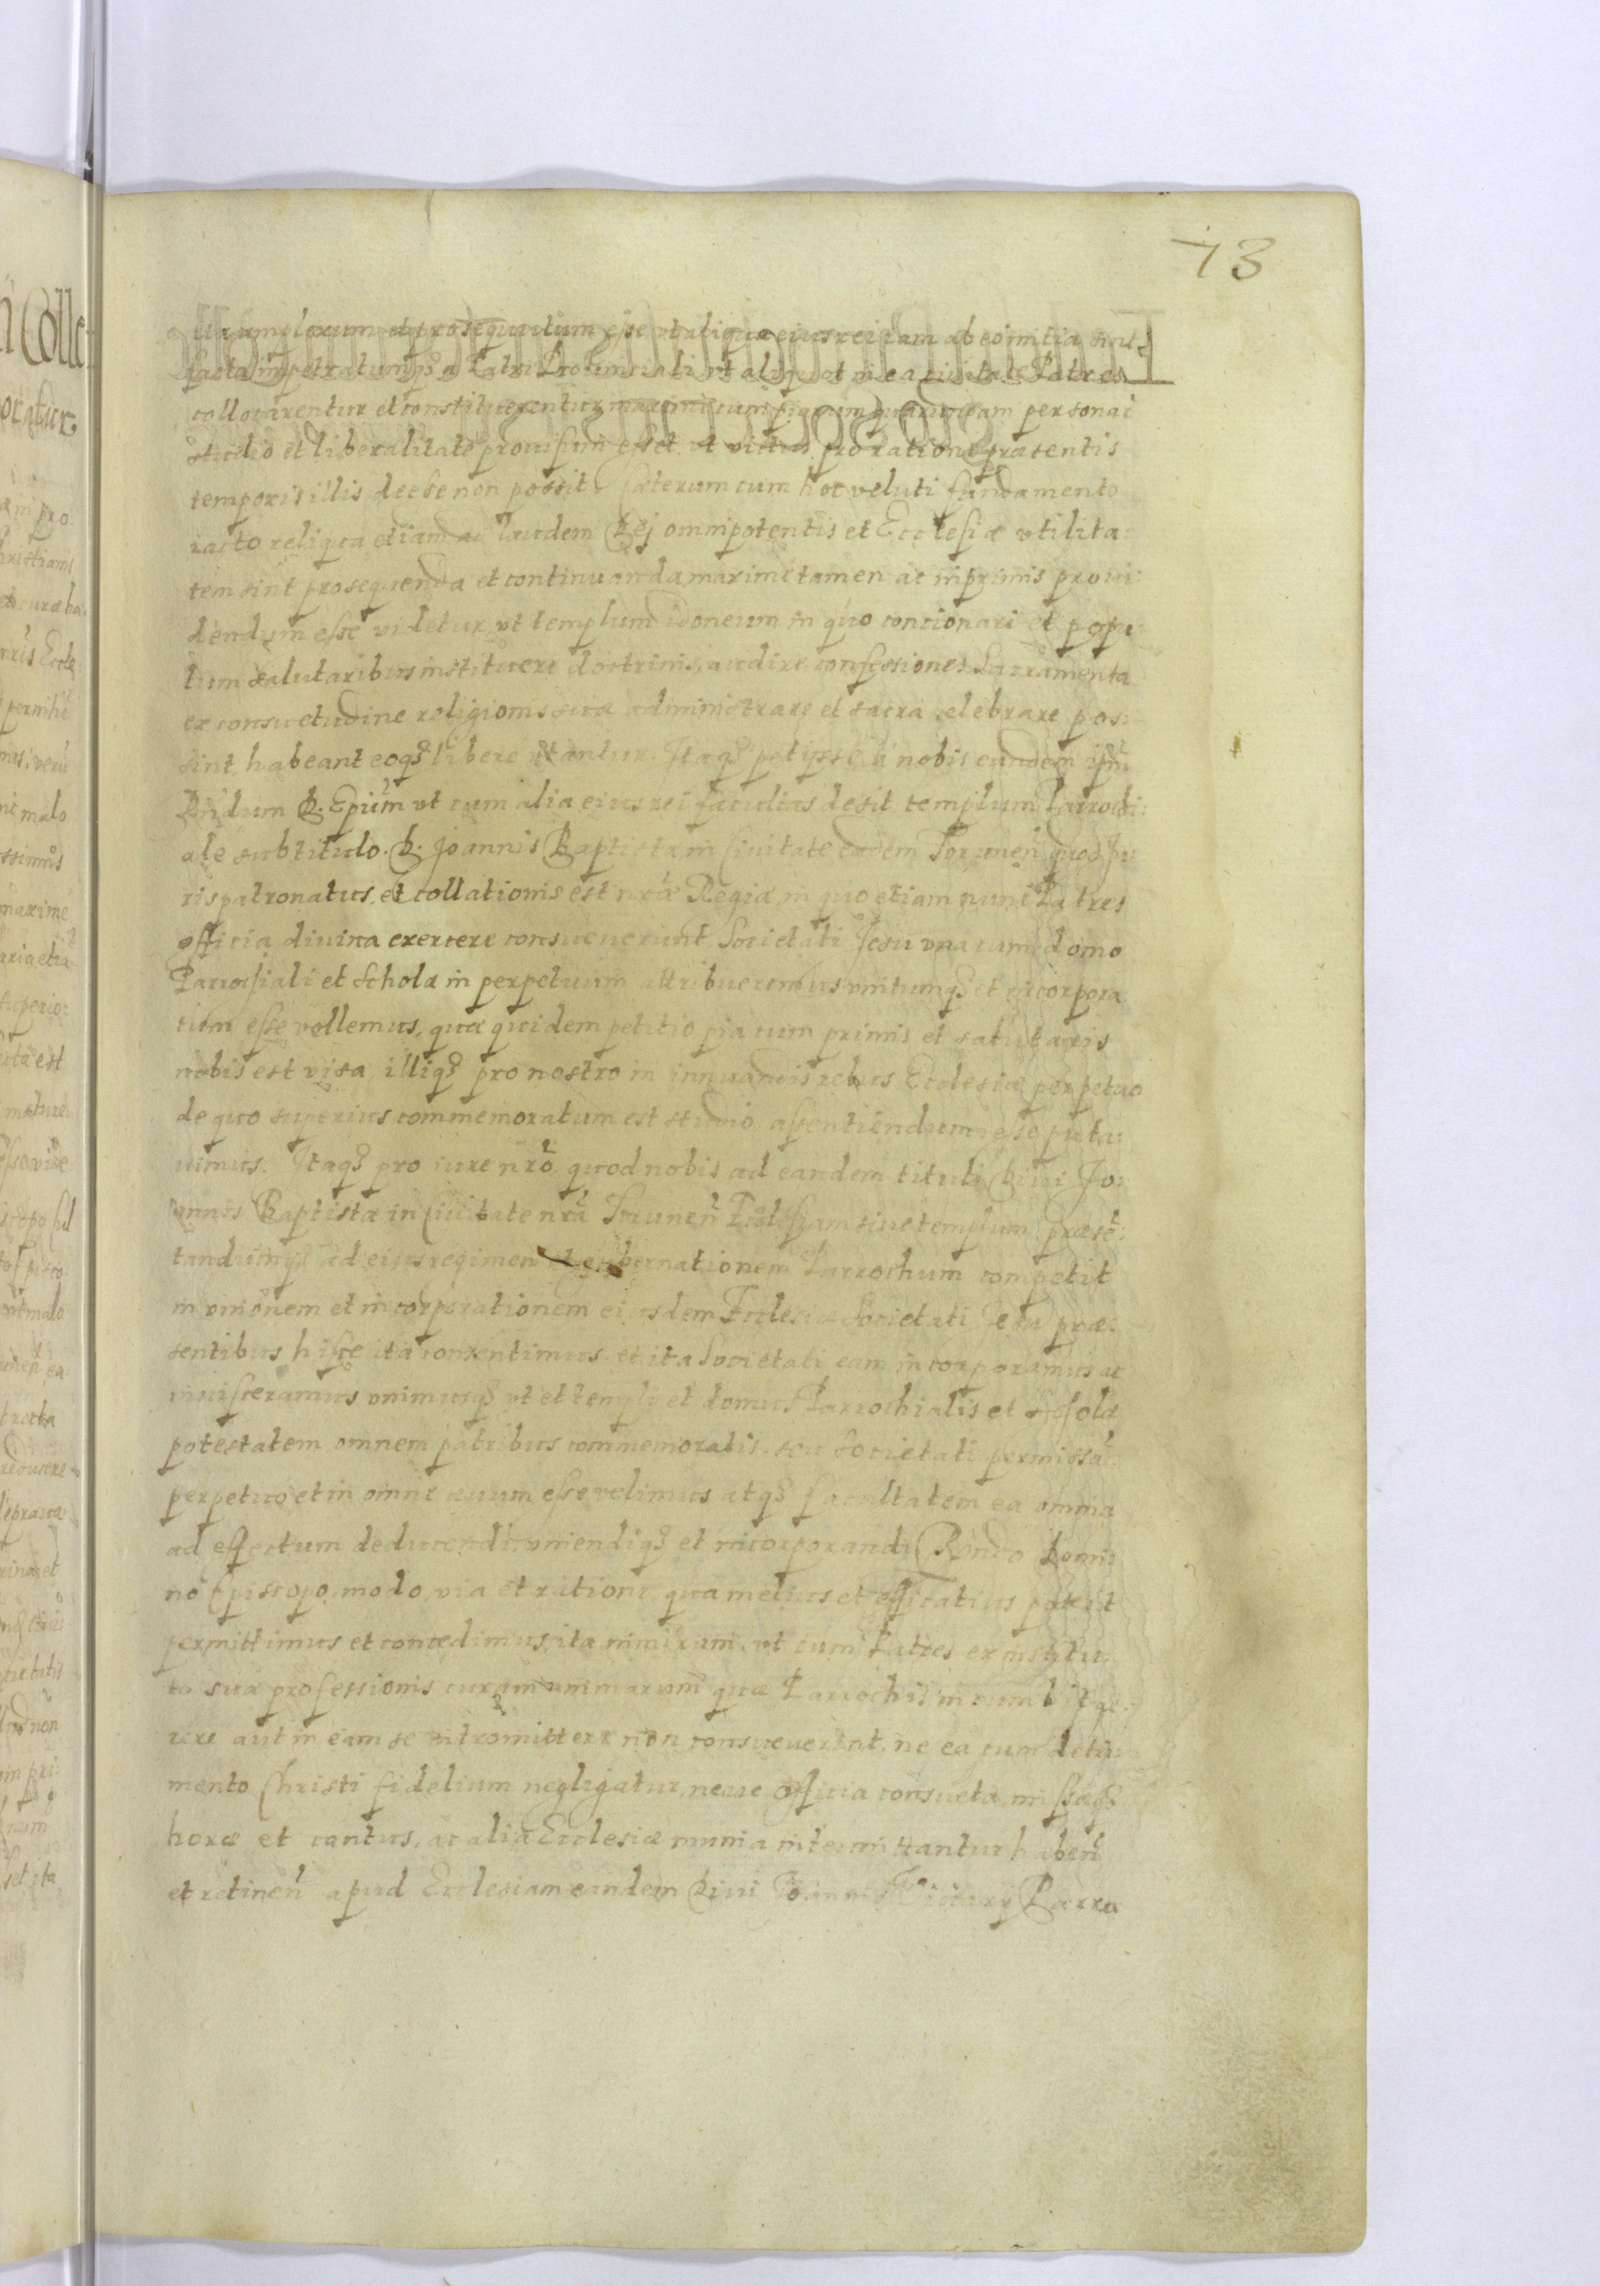 73
amplexum et prosequutum esse vt aliqua eius rei iam ab eo initia sint
facta impetratumqȝ a Patri Prouinciali vt aliquot in ea ciuitate Patres
collocarentur et constituerentur maxime cum piarum quarundam personar
studio et liberalitate prouisum esset vt victus pro ratione præsentis
temporis illis deesse non possit. Cæterum cum hoc veluti fundamento
iacto reliqua etiam ad laudem Dej omnipotentis et Ecclesiæ vtilita:
tem sint prosequenda et continuanda maxime tamen ac inprimis proui:
dendum esse videtur, vt templum idoneum in quo concionari et popu:
lum salutaribus instituere doctrinis, audire confessiones Sacramenta
ex consuetudine religionis suæ administrare et sacra celebrare pos:
sint habeant eoqȝ libere vtantur. Itaqȝ petijsse a nobis eundem
Rndum D. Epum vt cum alia eius rei facultas desit templum Parrochi:
ale sub titulo D. Joannis Baptistæ in Ciuitate eadem Torunen quod Ju
ris patronatus et collationis est nræ Regiæ in quo etiam nunc Patres
officia diuina exercere consueuerunt Societati Jesu vna cum domo
Parrochiali et Schola in perpetuum attribueremus vnitumqȝ et incorpora
tum esse vollemus, quæ quidem petitio pia cum primis et salutaris
nobis est visa, illiqȝ pro nostro in iuuandis rebus Ecclesiæ perpetuo
de quo superius commemoratum est studio assentiendum esse puta:
uimus. Itaqȝ pro iure nro quod nobis ad eandem tituli Diui Jo:
annis Baptistæ in Ciuitate nra Torunen Ecclesiam siue templum præsē:
tandumqȝ ad eius regimen et gubernationem Parrochum competit
in vnionem et incorporationem eiusdem Ecclesiæ Societati Jesu præ:
sentibus hisce ita consentimus et ita Societati eam incorporamus ac
inuisceramus vnimusqȝ vt et templi et domus Parrochialis et Scholæ
potestatem omnem patribus commemoratis seu Societati permissa
perpetuo et in omne æuum esse velimus atqȝ facultatem ea omnia
ad effectum deducendi, vniendiqȝ et incorporandi Rndo Domi:
no Episcopo, modo, via et ratione qua melius et efficatius poterit
permittimus et concedimus, ita nimirum, vt cum Patres ex institu:
to suæ professionis curam animarum quæ Parrochis incumbit ge:
rere aut in eam se intromittere non consueuerint, ne ea cum detri
mento Christi fidelium negligatur, neue officia consueta, missæqȝ
horæ et cantus, ac alia Ecclesiæ munia intermittantur haben
et retinen apud Ecclesiam eandem Diui Joannis Vicarij Parro